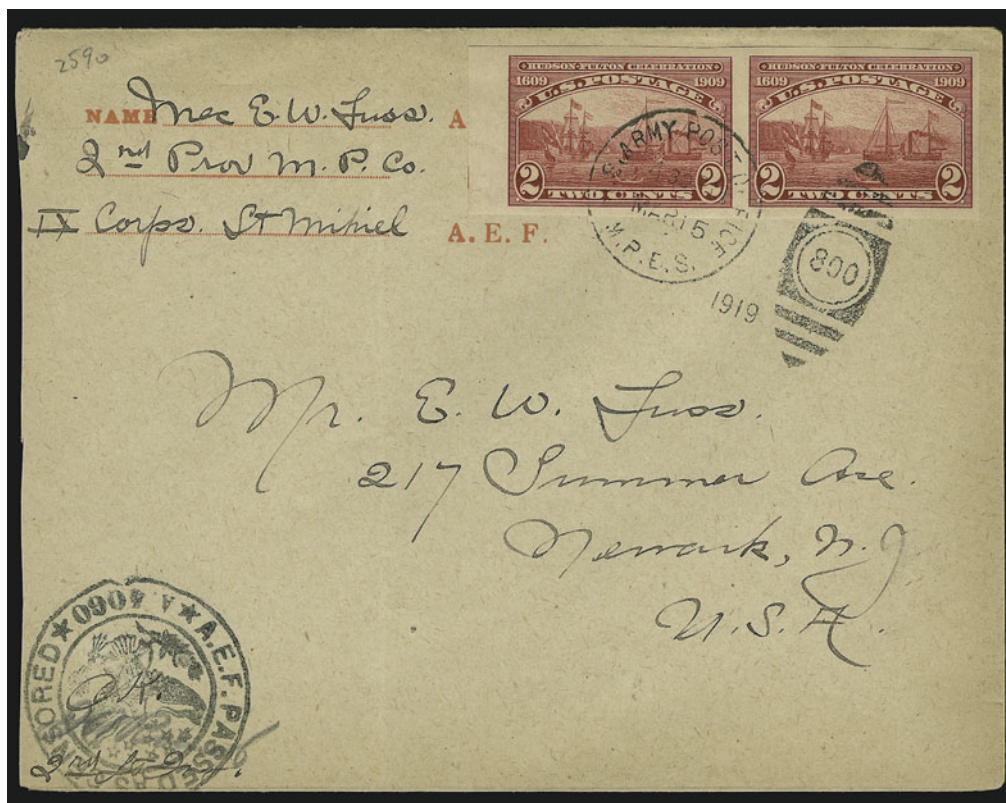 2590
NAME Mec E. W. Luss. A
2nd Prov M. P. Co.
IX Corps. St Mihiel A. E. F.
HUDSON-FULTON CELEBRATION
1609 1909
U.S. POSTAGE
2 TWO CENTS 2
HUDSON-FULTON CELEBRATION
1609 1909
U.S. POSTAGE
2 TWO CENTS 2
U.S. ARMY POST OFFICE
MAR 15
M.P.E.S.
1919
800
Mr. E. W. Luss.
217 Summer Ave.
Newark, N. J.
U. S. A.
A.E.F. PASSED AS CENSORED ★ A 4060 ★
O.K.
2nd Lt. Inf.